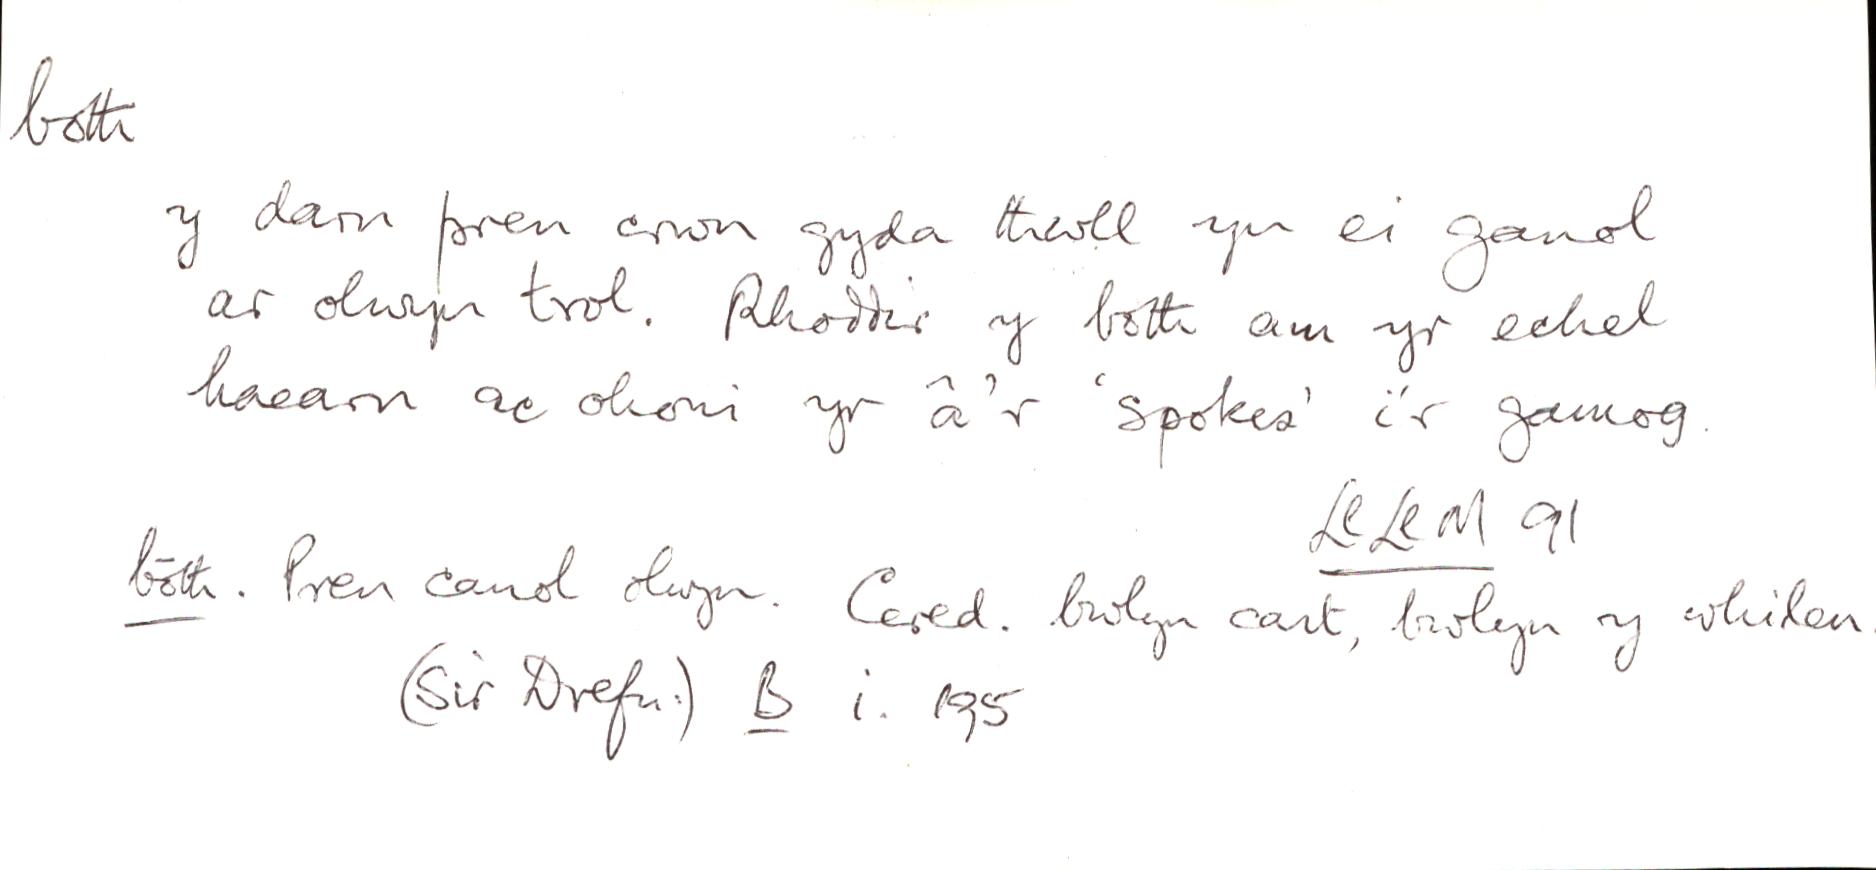 both
y darn pren crwn gyda thwll yn ei ganol
ar olwyn trol. Rhoddir y both am yr echel
haearn ac ohoni yr â'r 'spokes' i'r gamog.
LlLlM 91
bōth. Pren canol olwyn. Cered. bwlyn cart, bwlyn y whilen.
(Sir Drefn.) B i. 195